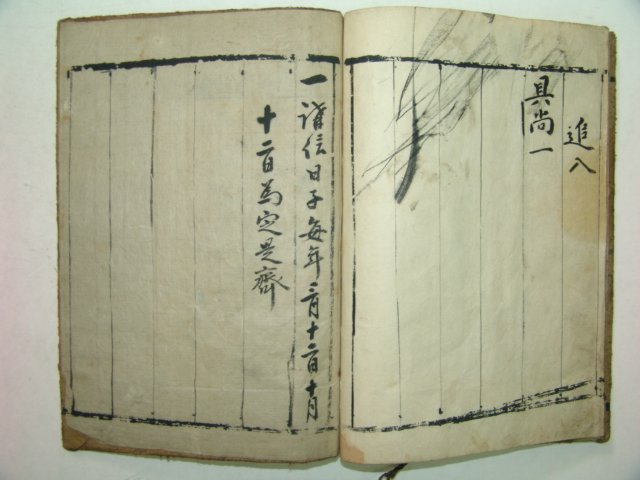 追入
具尚一
一講信日子每年三月十二日十月
十二日為定是齊